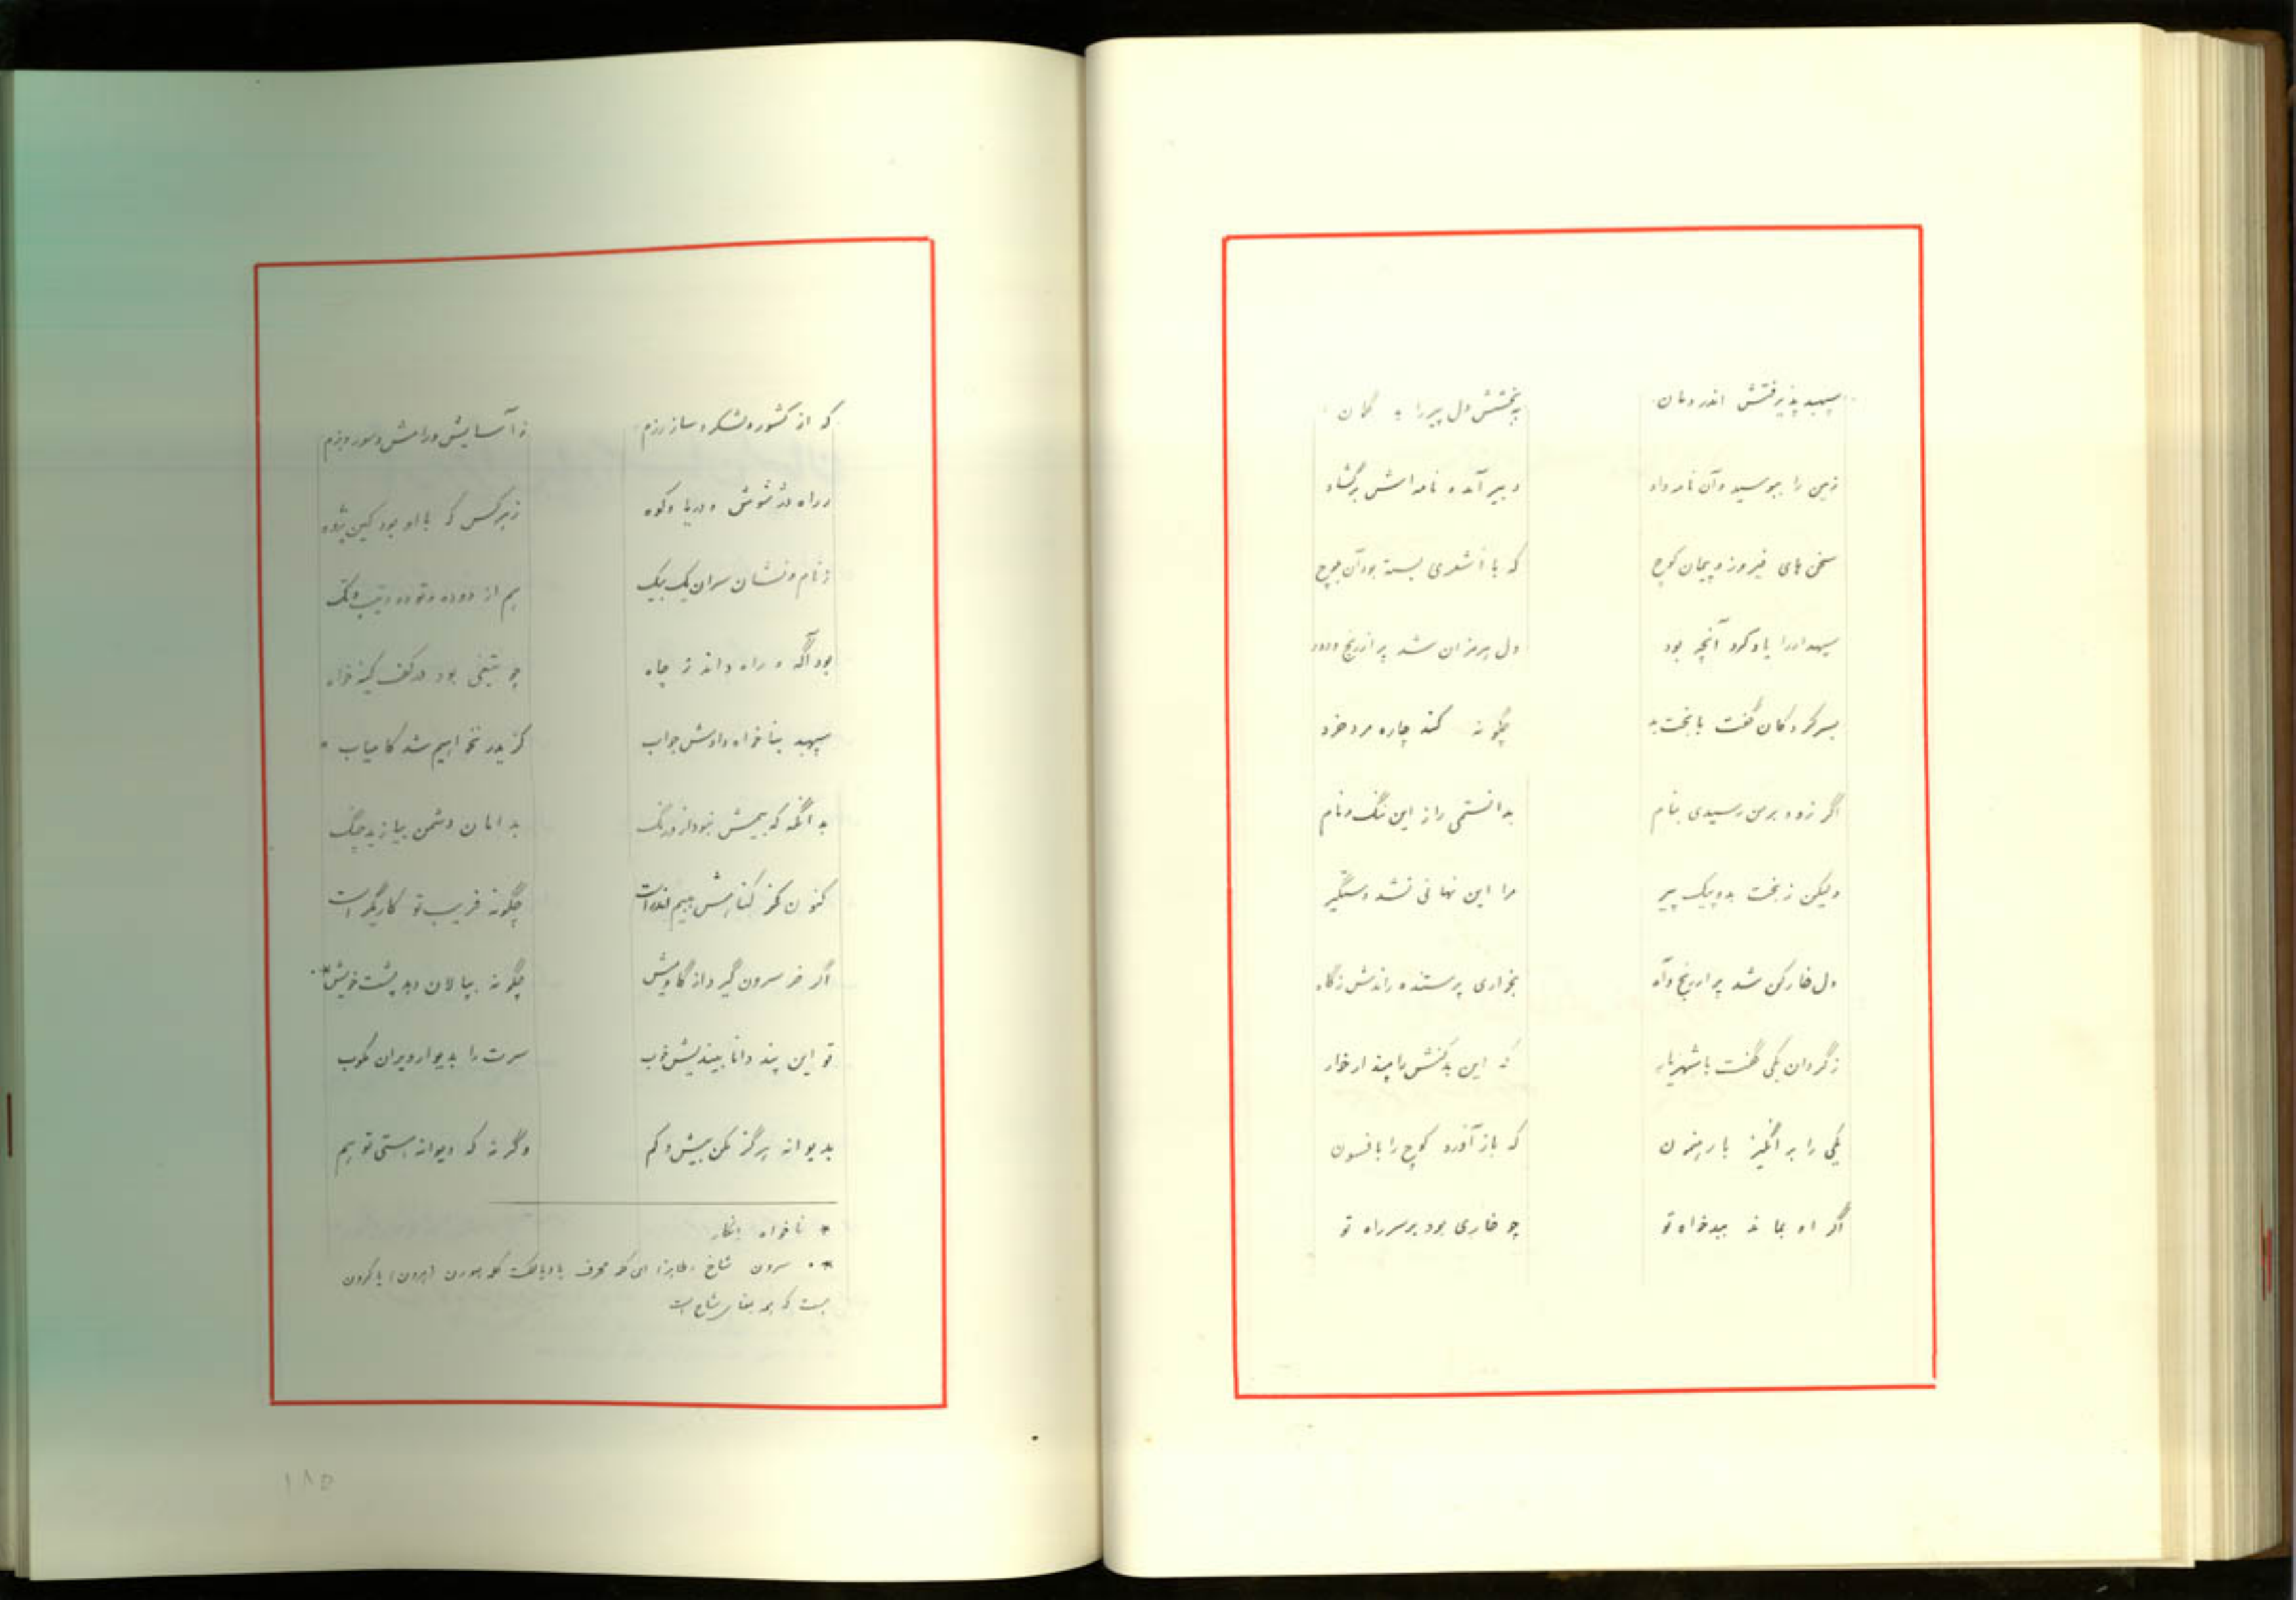 سپهبد پذیرفتش اندر زمان ببخشش دل پیر را بد گمان
زمین را ببوسید و آن نامه داد دبیر آمد و نامه اش برگشاد
سخن های فیروز و پیمان کوچ که با اشعری بسته بود آن بلوچ
سپهدار را یاد کرد آنچه بود دل هرمزان شد پر از رنج و دود
بسر کردگان گفت با بخت بد چگونه کند چاره مرد خرد
اگر زود بر من رسیدی پیام بدانستمی راز این ننگ و نام
ولیکن ز بخت بد و پیک پیر مرا این نهانی نشد دستگیر
دل خارکن شد پر از رنج و آه بخواری پرستنده راندش ز گاه
ز گردان یکی گفت با شهریار که این بدکنش را مپندار خوار
یکی را بر انگیز با رهنمون که باز آورد کوچ را با فسون
اگر او بماند ببدخواه تو چو خاری بود بر سر راه تو
که از کشور و لشکر و ساز رزم ز آسایش و رامش و سور و بزم
ز راه شوش و دریا و کوه ز هر کس که با او بود کین پژوه
ز نام و نشان سران یک بیک هم از دوده و توده و
بود آگه و راه داند ز چاه چو تیغی بود در کف کینه خواه
سپهبد بناخواه دادش جواب کز ایدر نخواهیم شد کامیاب *
بد انگه که بیمش نبود از درنگ به امان دشمن بیازید چنگ
کنون کز کنارش بیم اندر است چگونه فریب تو کارگر است
اگر خر سرون گیرد از گاومیش چگونه بپالان دهد پشت خویش **
تو این پند دانا بیندیش خوب سرت را بدیوار ویران مکوب
بدیوانه هرگز مکن بیش و کم وگر نه که دیوانه هستی تو هم
* ناخواه انکار
** سرون شاخ ظاهرا این کلمه محرف یا کلمه (هرون) یا کرون
است که همه بمعنای شاخ است
۱۸۵